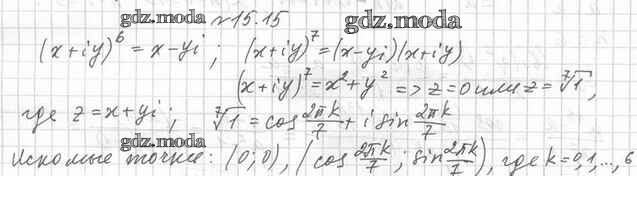 gdz.moda №15.15 gdz.moda
(x+iy)^6 = x-yi ; (x+iy)^7 = (x-yi)(x+iy)
(x+iy)^7 = x^2+y^2 => z=0 или z = ⁷√1,
где z=x+yi ; ⁷√1 = cos 2πk/7 + i sin 2πk/7
gdz.moda gdz.moda
Искомые точки: (0;0), (cos 2πk/7 ; sin 2πk/7), где k=0,1,...,6